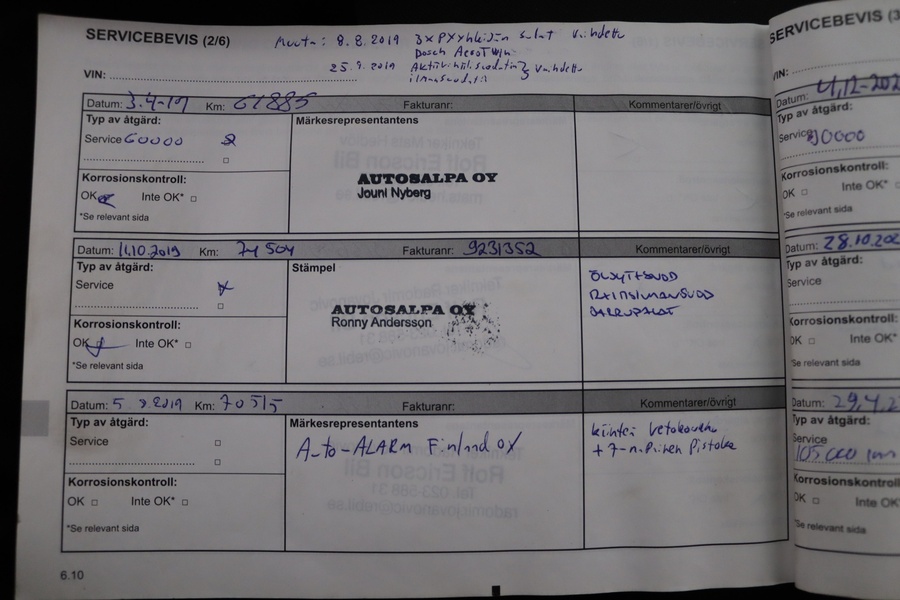 SERVICEBEVIS (2/6)
Muuta: 8.8.2019 3x Pyyhkijän sulat vaihdettu
Bosch AeroTwin
25.9.2019 Aktiivihiilisuodatin
ilmansuodatin } vaihdettu
VIN:
Datum: 3.4-19 Km: 61885 Fakturanr: Kommentarer/övrigt
Typ av åtgärd: Märkesrepresentantens
Service 60000
AUTOSALPA OY
Jouni Nyberg
Korrosionskontroll:
OK Inte OK*
*Se relevant sida
Datum: 11.10.2019 Km: 74504 Fakturanr: 9231352 Kommentarer/övrigt
Typ av åtgärd: Stämpel
Service
AUTOSALPA OY
Ronny Andersson
Korrosionskontroll:
OK Inte OK*
*Se relevant sida
Datum: 5 8.2019 Km: 70515 Fakturanr: Kommentarer/övrigt
Typ av åtgärd: Märkesrepresentantens
Service
Auto-ALARM Finland OY
kiinteä vetokoukku
+ 7-napainen Pistoke
Korrosionskontroll:
OK Inte OK*
*Se relevant sida
6.10
SERVICEBEVIS (3
VIN:
Datum:
Typ av åtgärd:
Service 90000
Korrosionskontroll:
OK Inte OK*
*Se relevant sida
Datum: 28.10.202
Typ av åtgärd:
Service
Korrosionskontroll:
OK Inte OK*
*Se relevant sida
Datum: 29.4.2
Typ av åtgärd:
Service
105 000 km
Korrosionskontroll
OK Inte OK*
*Se relevant sida